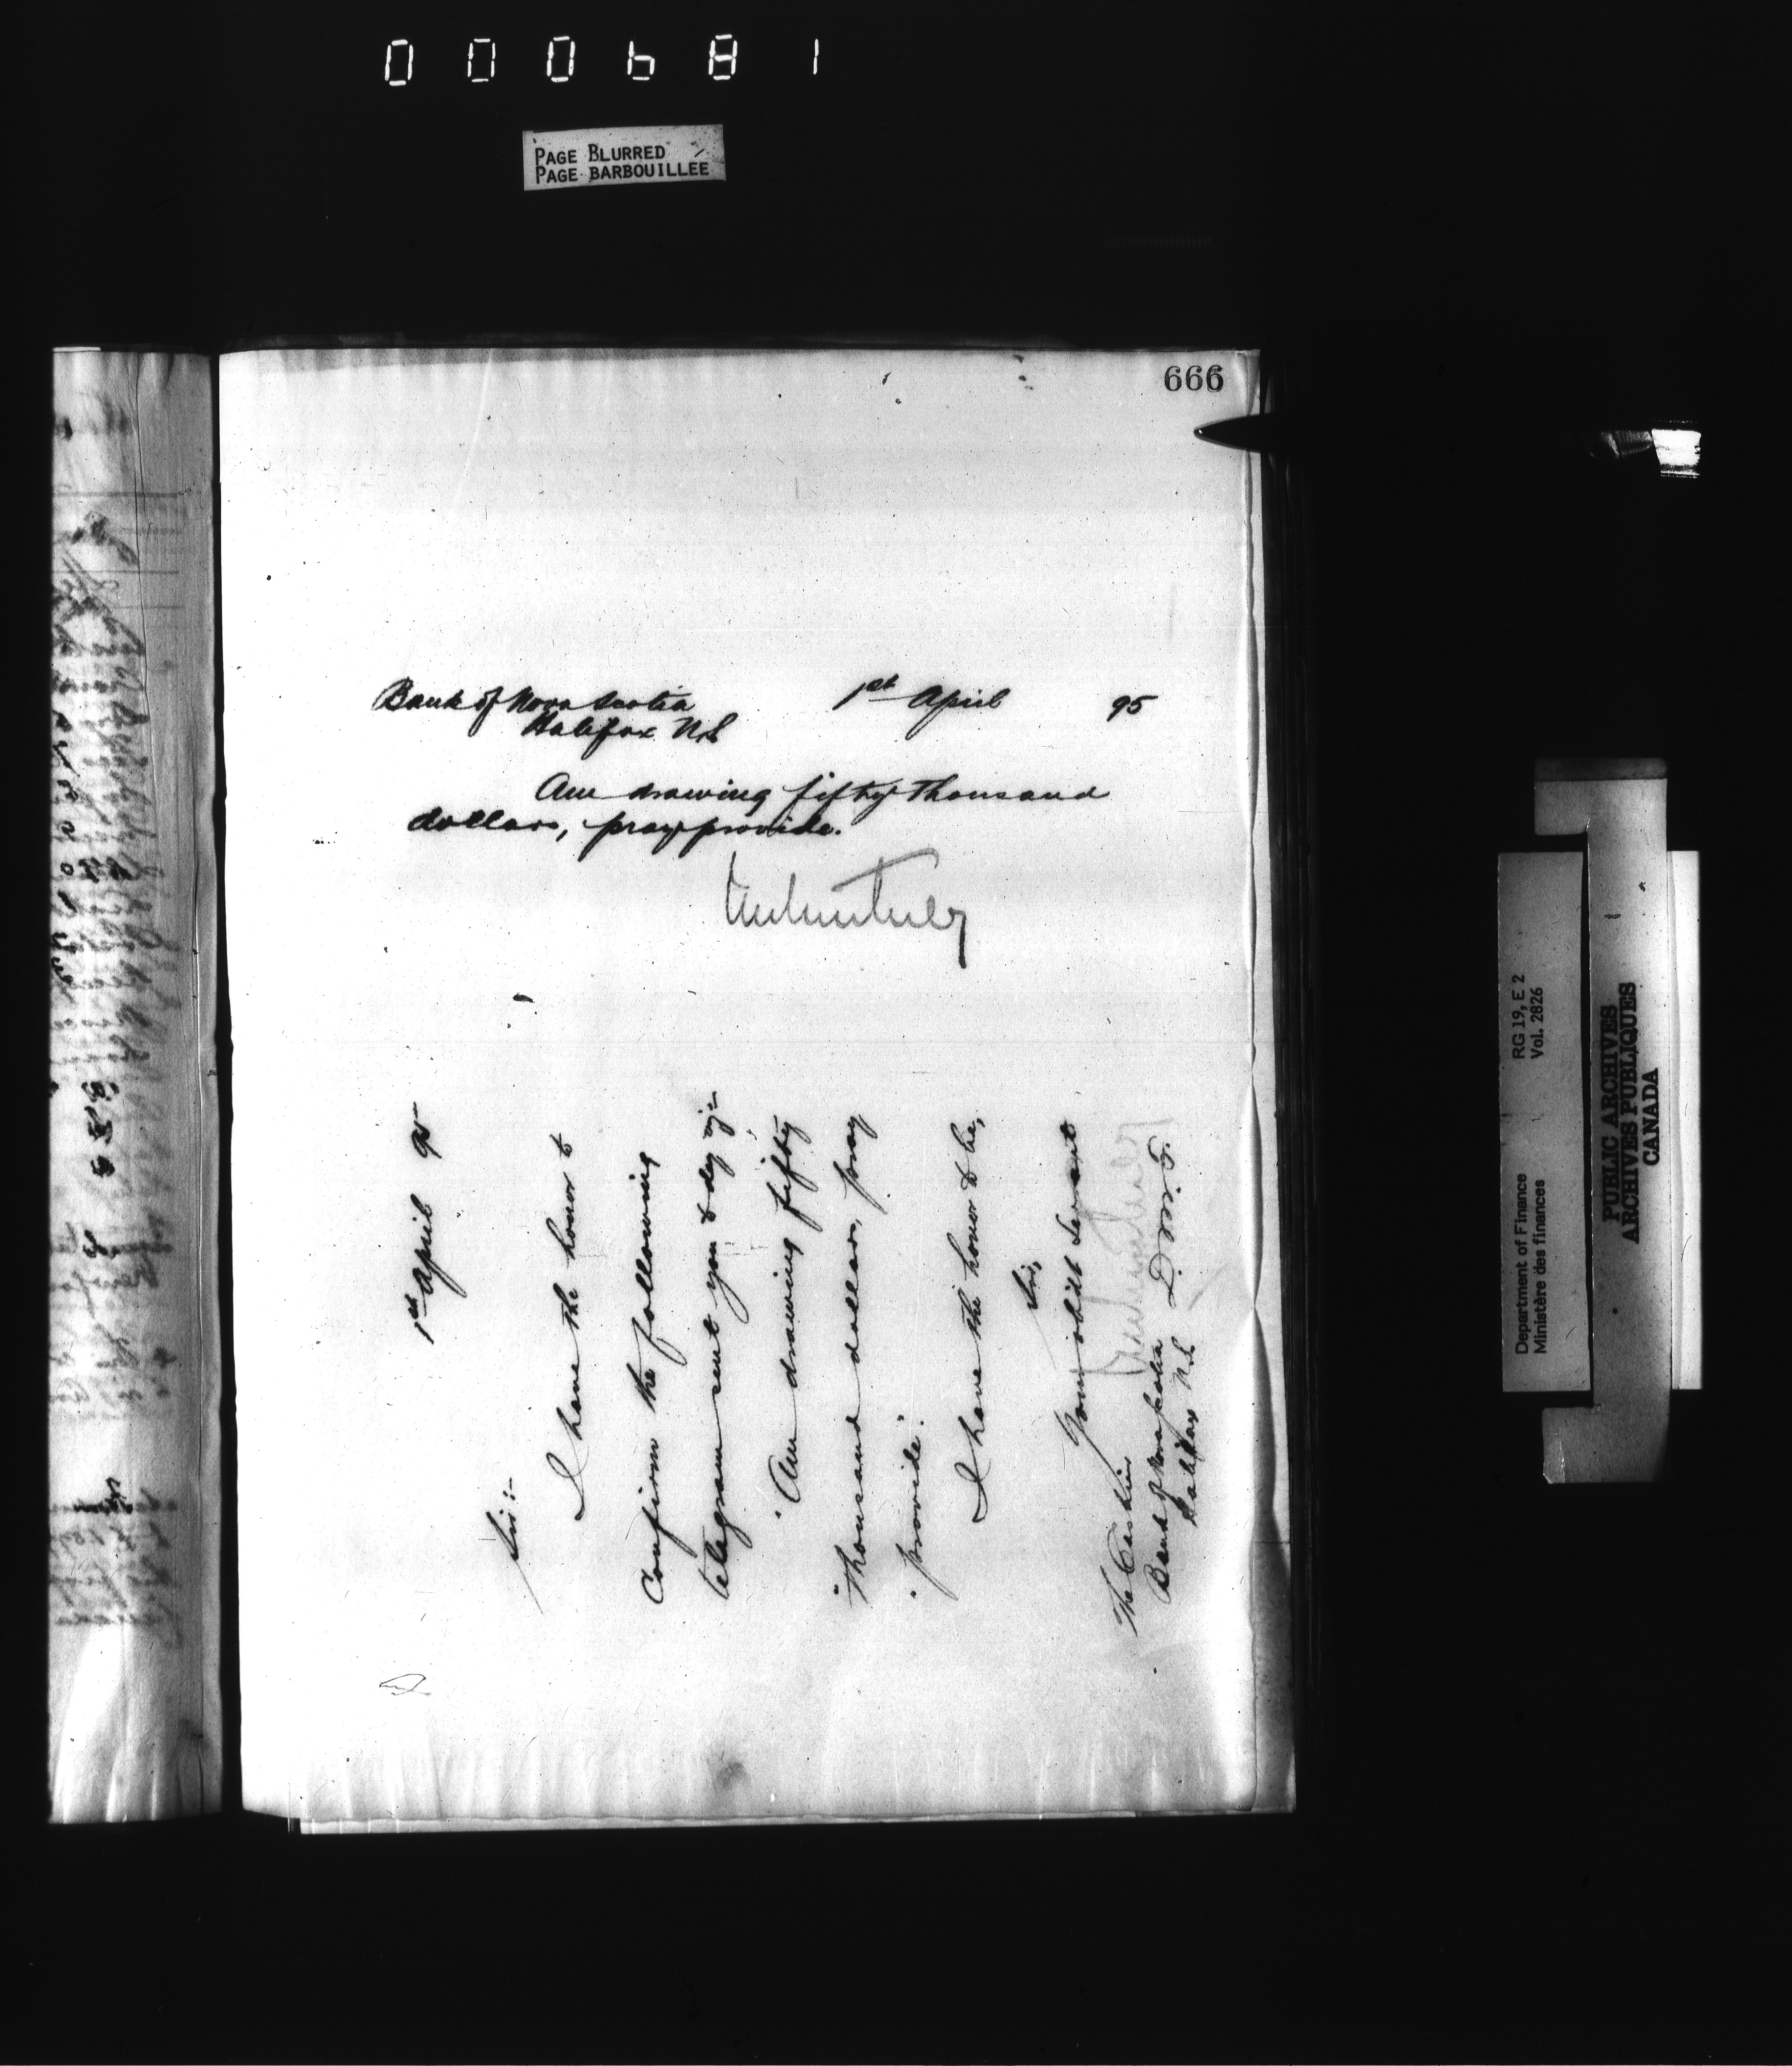 000681
PAGE BLURRED
PAGE BARBOUILLÉE
666
Bank of Nova Scotia 1st April 95
Halifax N.S
Am drawing fifty thousand
dollars, pray provide.
1st April 95
Sir:-
I have the honor to
Confirm the following
telegram sent you to-day viz:-
"Am drawing fifty
"thousand dollars, pray
"provide".
I have the honor to be,
Sir,
Your obdt Servant
D.M.F.
The Cashier
Bank of Nova Scotia
Halifax N.S
Department of Finance RG 19, E 2
Ministère des finances Vol. 2826
PUBLIC ARCHIVES
ARCHIVES PUBLIQUES
CANADA